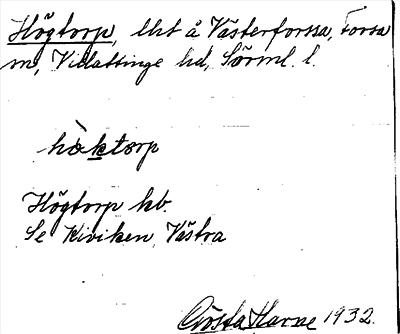 Högtorp, lht å Västerforssa, Forssa
sn, Villåttinge hd, Sörml. l.
hòktorp
Högtorp hb.
Se Kiviken, Västra
Gösta Harne 1932.